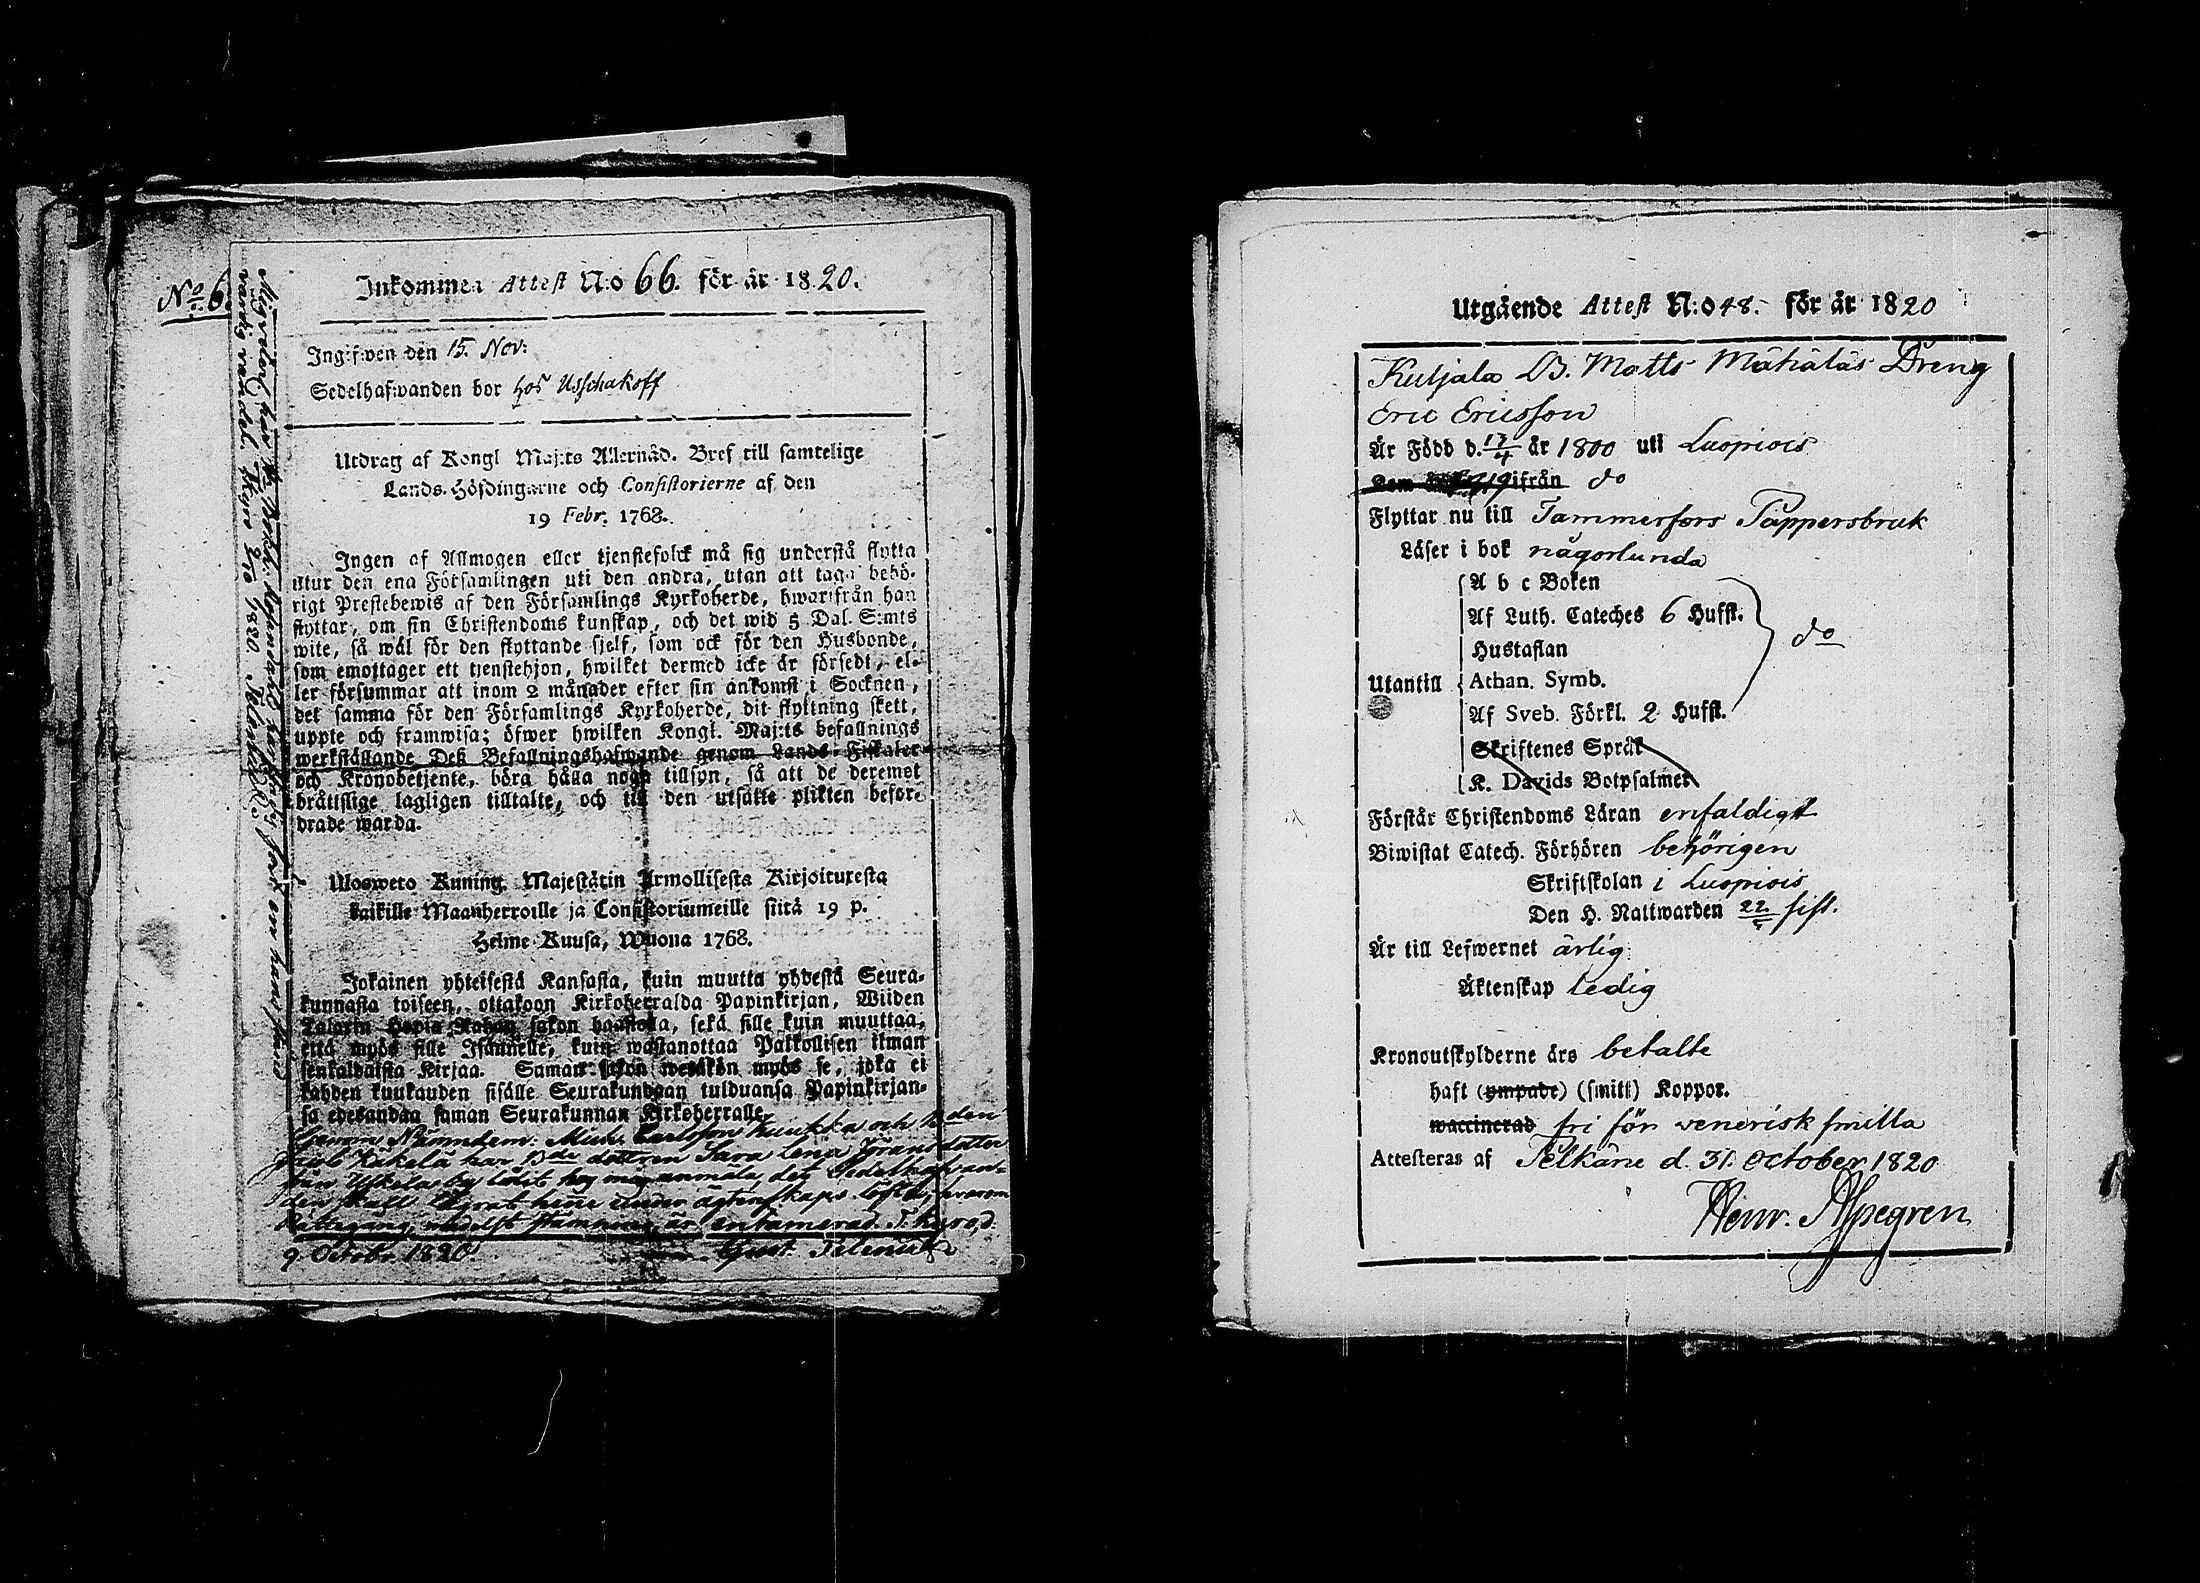 No 6
Inkommen Attest N:o 66. för år 1820.
Ingifwen den 15. Nov:
Sedelhafwanden bor hos Usschakoff
Utdrag af Kongl Maj:ts Allernåd. Bref till samtelige
Lands-Höfdingarne och Consistorierne af den
19 Febr. 1768.
Ingen af Allmogen eller tjenstefolck må sig understå flytta
utur den ena Församlingen uti den andra, utan att taga behö-
rigt Prestebewis af den Församlings Kyrkoherde, hwarifrån han
flyttar, om sin Christendoms kunskap, och det wid 5 Dal. S:mts
wite, så wäl för den flyttande sjelf, som ock för den Husbonde,
som emottager ett tjenstehjon, hwilket dermed icke är försedt, el-
ler försummar att inom 2 månader efter sin ankomst i Socknen,
det samma för den Församlings Kyrkoherde, dit flyttning skett,
uppte och framwisa; öfwer hwilken Kongl. Maj:ts befallnings
werkställande Deß Befallningshafwande genom Lands-Fiskaler
och Kronobetjente, böra hålla noga tillsyn, så att de deremot
bråttslige lagligen tilltalte, och till den utsatte plikten befor-
drade warda.
Ulosweto Kuning. Majestätin Armollisesta Kirjoituxesta
kaikille Maanherroille ja Consistoriumeille siitä 19 p.
Helme-Kuusa, Wuona 1768.
Jokainen yhteisestä Kansasta, kuin muutta yhdestä Seura-
kunnasta toiseen, ottakoon Kirkoherralda Papinkirjan, Wiiden
Talarin Hopia Rahan sakon haastolla, sekä sille kuin muuttaa,
että myös sille Isännelle, kuin wastanottaa Palkollisen ilman
senkaldaista Kirjaa. Saman sakon wetäkön myös se, joka ei
kahden kuukauden sisälle Seurakundaan tulduansa Papinkirjan-
sa edesandaa saman Seurakunnan Kirkoherralle.
Jacob Käkelä har Bde dottren Sara Lena Jöransdotter
9. Octobr. 1820. Gust. Polenius
Utgående Attest N:o 48. för år 1820
Kuljala B. Matts Mähäläs Dreng
Eric Ericsson
Är Född d. 17/4 år 1800 uti Luopiois
Kom år 1819 ifrån do
Flyttar nu till Tammerfors Pappersbruk
Läser i bok någorlunda
A b c Boken
Af Luth. Cateches 6 Hufst.
do
Hustaflan
Utantill
Athan. Symb.
Af Sveb. Förkl. 2 Hufst.
Skriftenes Språk
K. Davids Botpsalmer
Förstår Christendoms Läran enfaldigt
Biwistat Catech. Förhören behörigen
Skriftskolan i Luopiois
Den H. Nattwarden 22/ sist.
Är till Lefwernet ärlig
Äktenskap ledig
Kronoutskylderne äro betalte
haft (ympade) (smitt) Koppor.
waccinerad fri för venerisk smitta
Attesteras af Pelkäne d. 31. October 1820
Henr. Alpegren